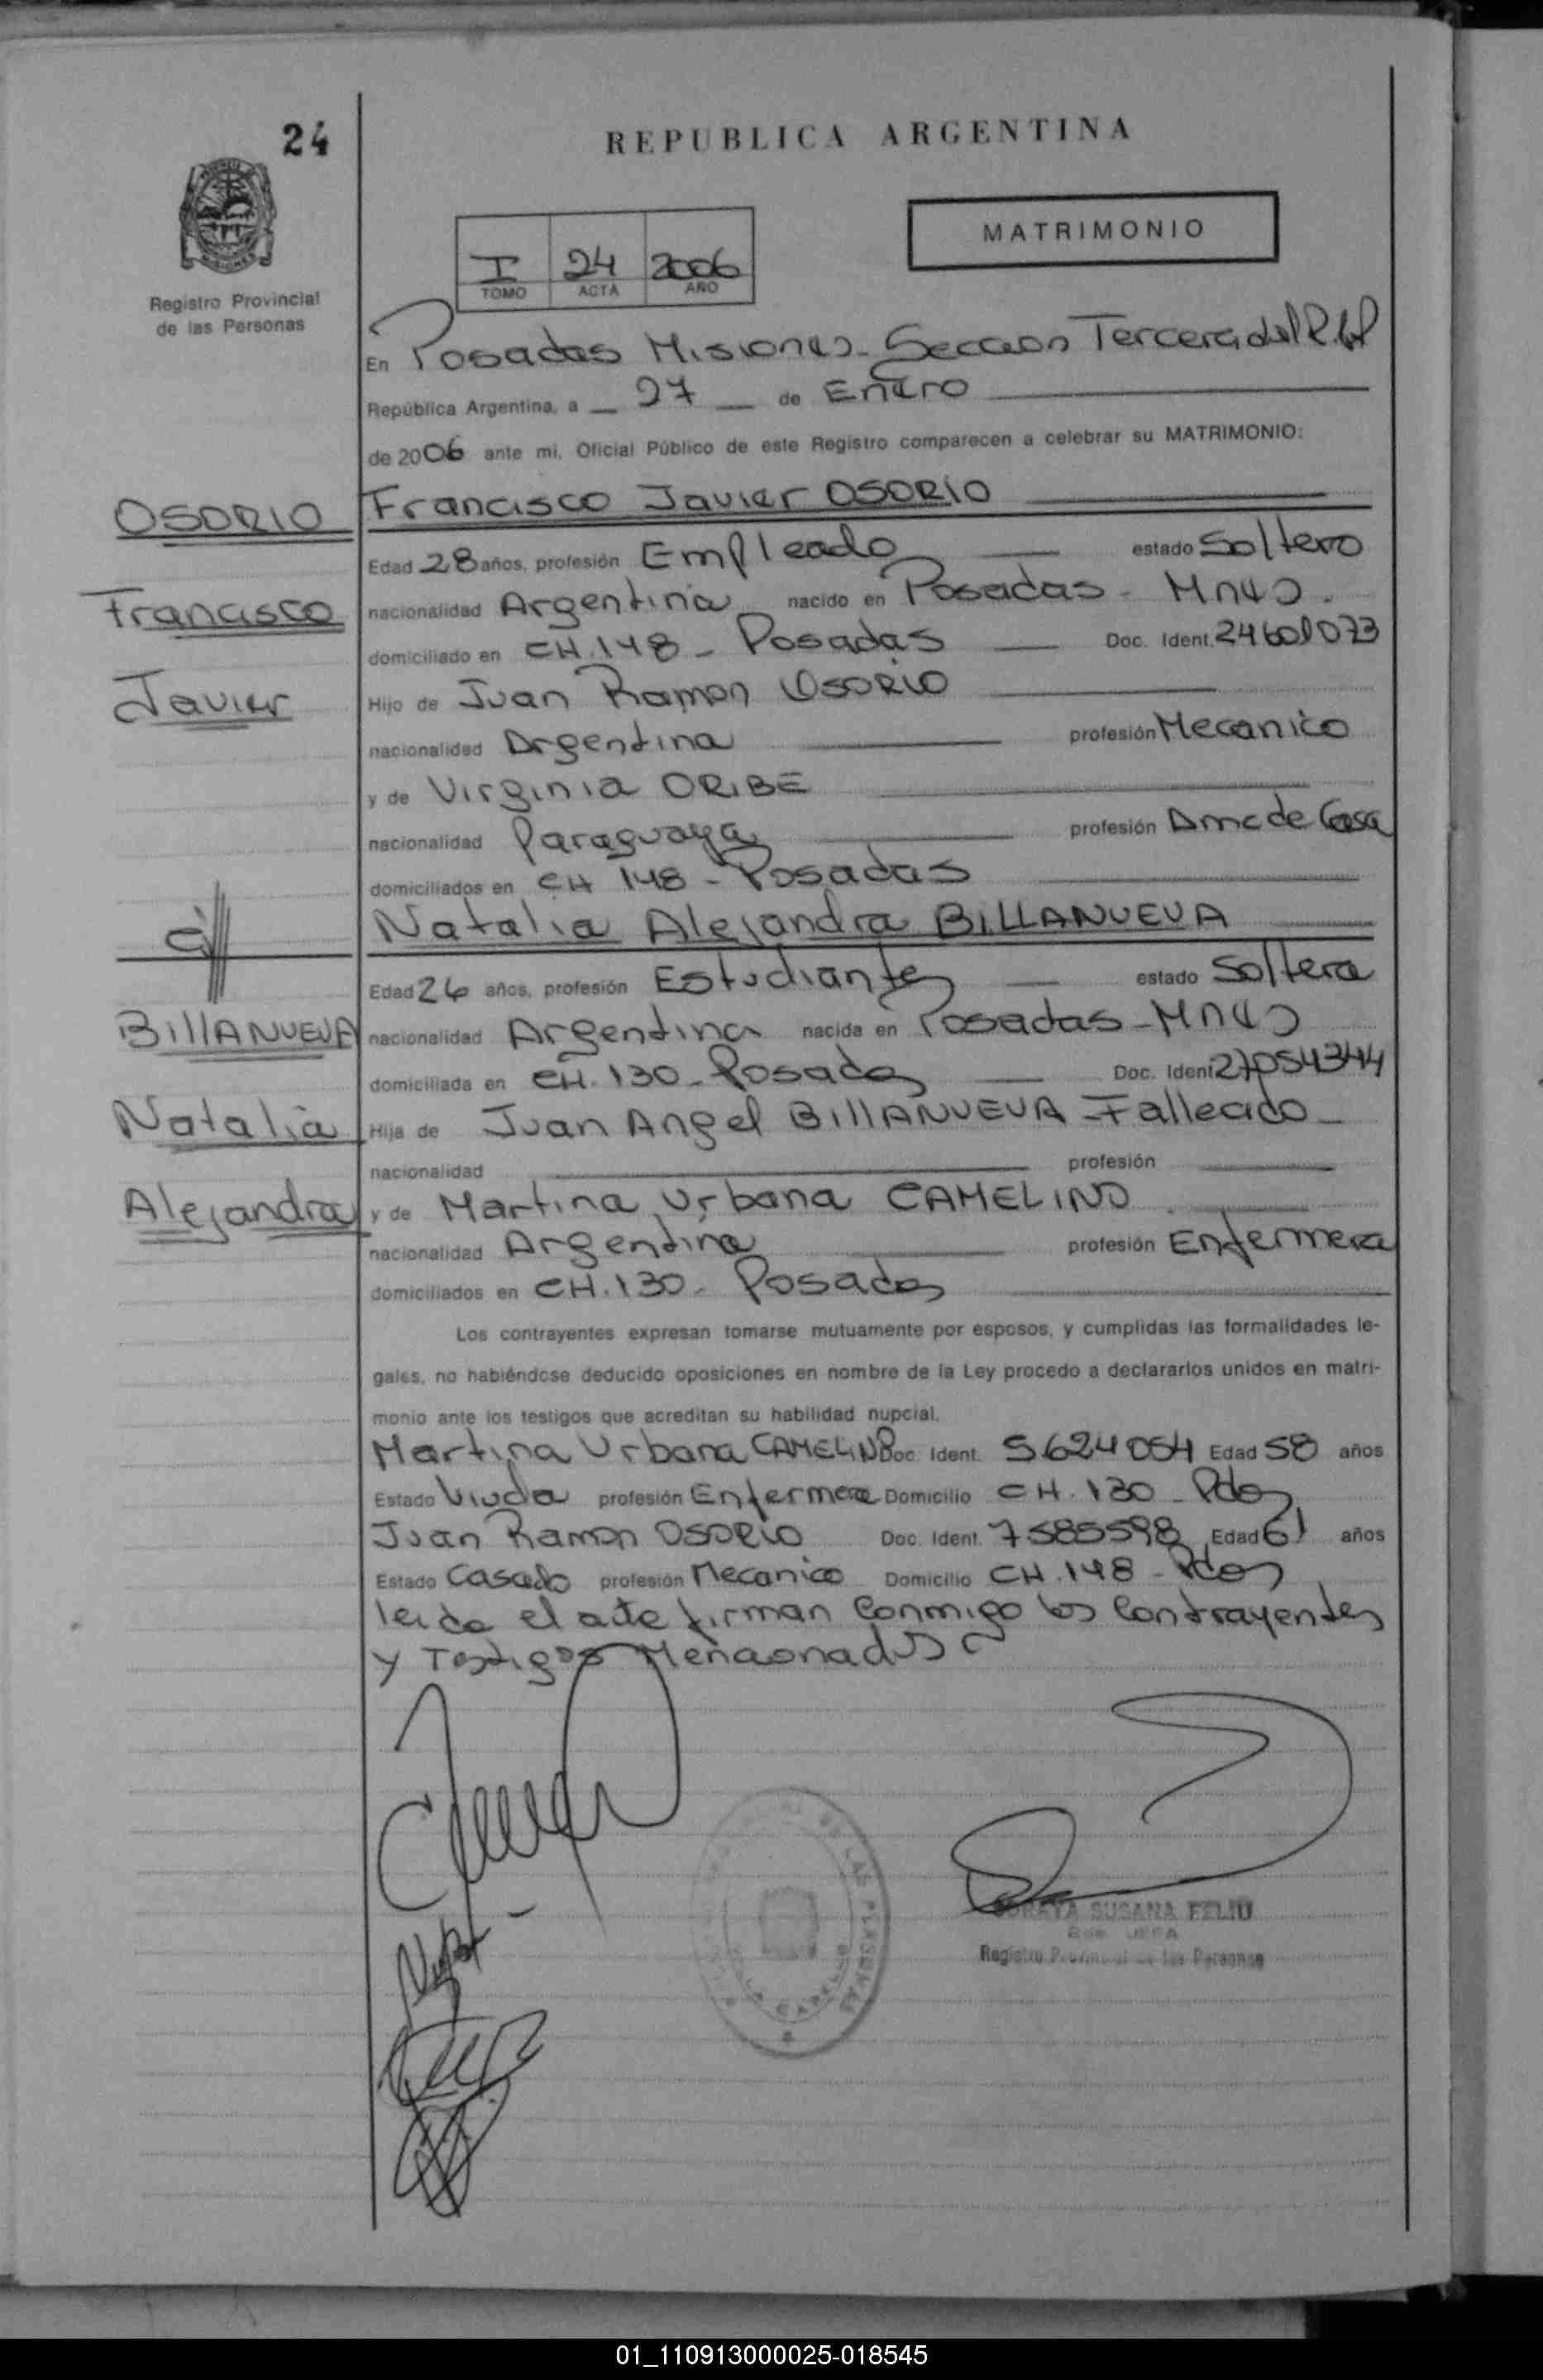 24
REPUBLICA ARGENTINA
MATRIMONIO
I 24 2006
TOMO ACTA AÑO
Registro Provincial
de las Personas
En Posadas Misiones - Seccion Tercera del R.P.
República Argentina, a 27 de Enero
de 2006 ante mi, Oficial Público de este Registro comparecen a celebrar su MATRIMONIO:
OSORIO
Francisco Javier OSORIO
Edad 28 años, profesión Empleado estado Soltero
Francisco
nacionalidad Argentina nacido en Posadas - Mnes.
domiciliado en CH. 148 - Posadas Doc. Ident. 24601073
Javier
Hijo de Juan Ramon OSORIO
nacionalidad Argentina profesión Mecanico
y de Virginia ORIBE
nacionalidad Paraguaya profesión Ama de Casa
domiciliados en CH 148 - Posadas
c/
Natalia Alejandra BILLANUEVA
Edad 26 años, profesión Estudiante estado Soltera
BIllANUEVA
nacionalidad Argentina nacida en Posadas - Mnes
domiciliada en CH. 130 - Posadas Doc. Ident 27054344
Natalia
Hija de Juan Angel BIllANUEVA - Fallecido -
nacionalidad profesión
Alejandra
y de Martina Urbana CAMELINO
nacionalidad Argentina profesión Enfermera
domiciliados en CH. 130 - Posadas
Los contrayentes expresan tomarse mutuamente por esposos, y cumplidas las formalidades le-
gales, no habiéndose deducido oposiciones en nombre de la Ley procedo a declararlos unidos en matri-
monio ante los testigos que acreditan su habilidad nupcial.
Martina Urbana CAMELINO Doc. Ident. 5624054 Edad 58 años
Estado Viuda profesión Enfermera Domicilio CH. 130 - Pdas
Juan Ramon OSORIO Doc. Ident. 7585598 Edad 61 años
Estado Casado profesión Mecanico Domicilio CH. 148 - Pdas
leida el acta firman conmigo los contrayentes
y Testigos Mencionados
SUSANA FELIU
Registro Provincial de las Personas
01_110913000025-018545